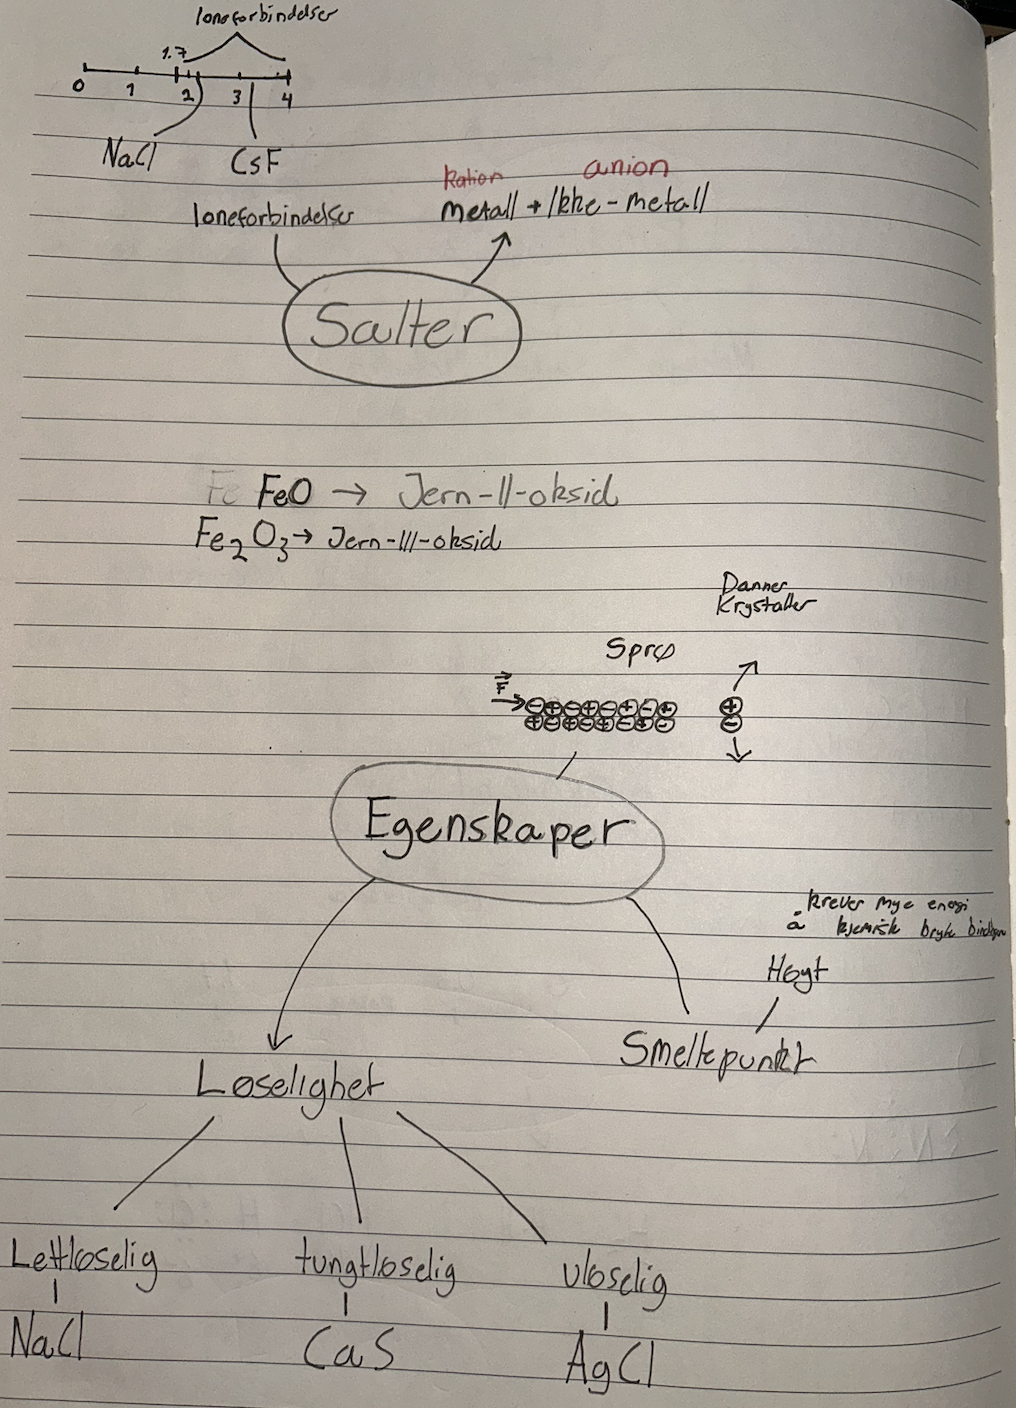 Ioneforbindelser
1.7
0 1 2 3 4
NaCl CsF
kation anion
Ioneforbindelser metall + Ikke-metall
Salter
Fe FeO → Jern-II-oksid
Fe₂O₃ → Jern-III-oksid
Danner
Krystaller
Sprø
F
⊖⊕⊖⊕⊖⊕⊖⊕ ⊕
⊕⊖⊕⊖⊕⊖⊕⊖ ⊖
Egenskaper
krever mye energi
å kjemisk bryte
Høyt
Smeltepunkt
Løselighet
Lettløselig tungtløselig uløselig
NaCl CaS AgCl